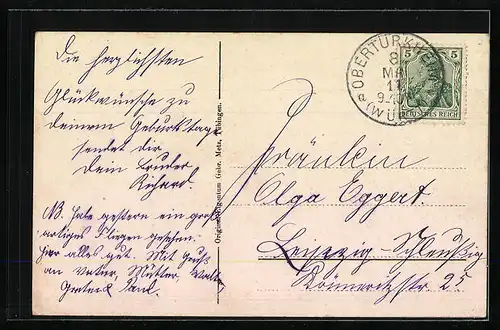 Die herzlichsten
Glückwünsche zu
deinem Geburtstage
sendet dir
dein Bruder
Richard.
NB. habe gestern ein groß-
artiges Fliegen gesehen.
Hier alles gut. Mit Gruß
an Vater, Mutter, Walter,
Paul.
Original-Eigentum Gebr. Metz, Tübingen.
OBERTÜRKHEIM
8
MAI
11
(WÜ
5 5
DEUTSCHES REICH
Fräulein
Olga Eggert.
Leipzig-Schleußig
Könneritzstr 25